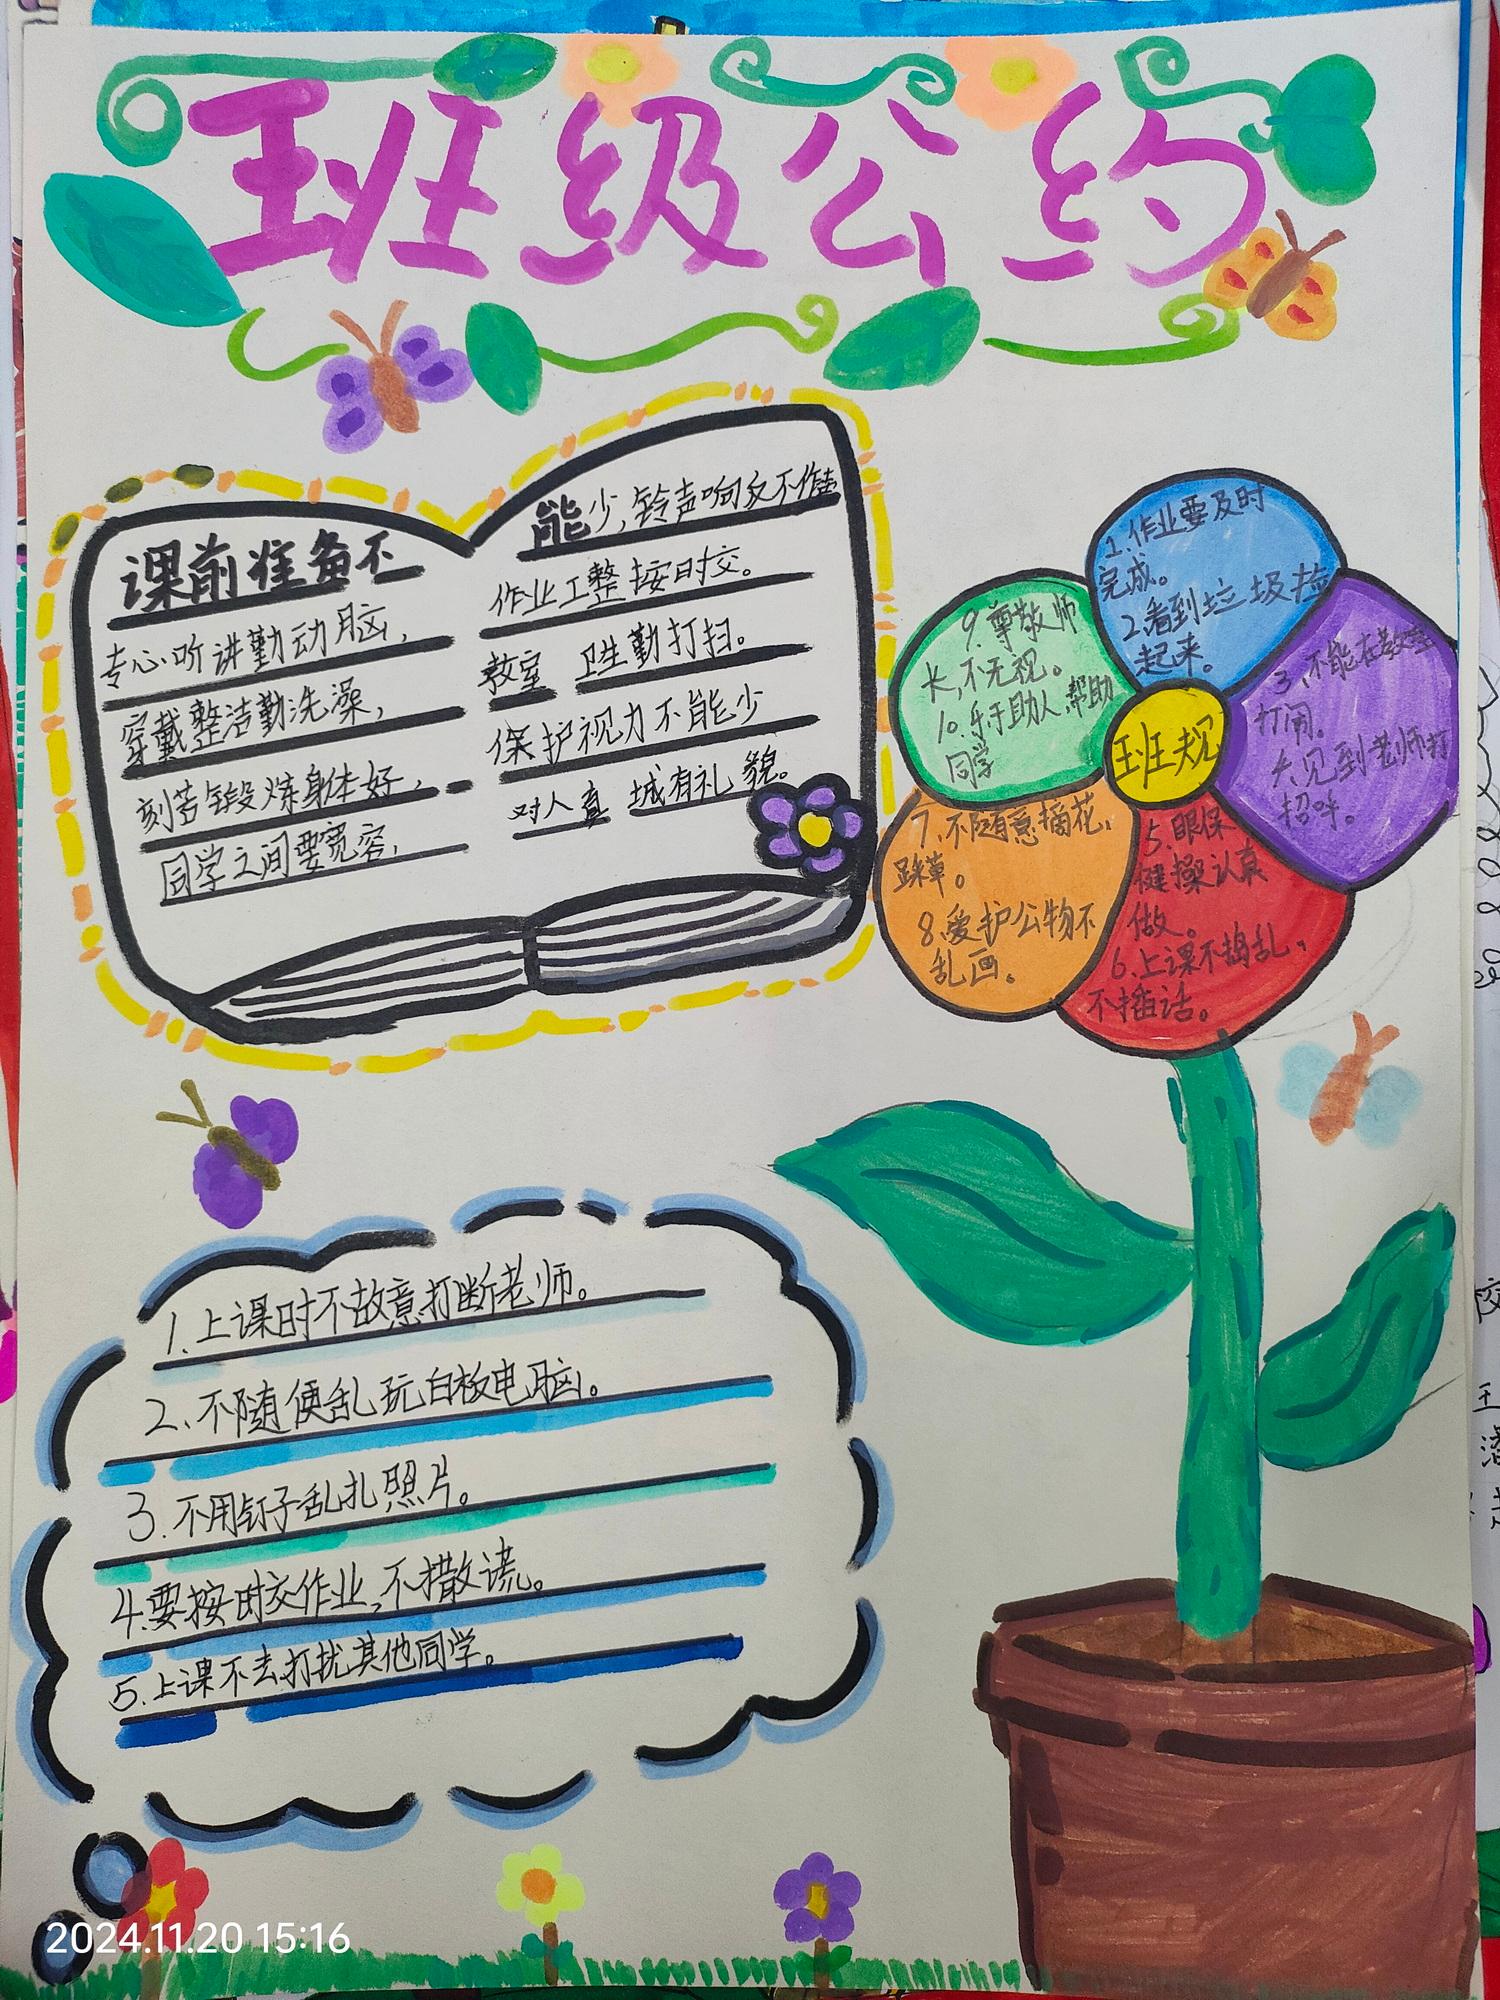 班级公约
课前准备不
专心听讲勤动脑,
穿戴整洁勤洗澡,
刻苦锻炼身体好,
同学之间要宽容,
能少,铃声响
作业工整按时交。
教室 卫生勤打扫。
保护视力不能少
对人真 城有礼貌。
班规
1.作业要及时
完成。
2.看到垃圾捡
起来。
3.不能在教室
打闹。
见到老师打
招呼。
5.眼保
健操认真
做。
6.上课不捣乱,
不插话。
7.不随意摘花,
踩草。
8.爱护公物不
乱画。
9.尊敬师
长,不无视。
10.乐于助人,帮助
同学
1.上课时不故意打断老师。
2.不随便乱玩白板电脑。
3.不用钉子乱扎照片。
4.要按时交作业,不撒谎。
5.上课不去打扰其他同学。
2024.11.20 15:16